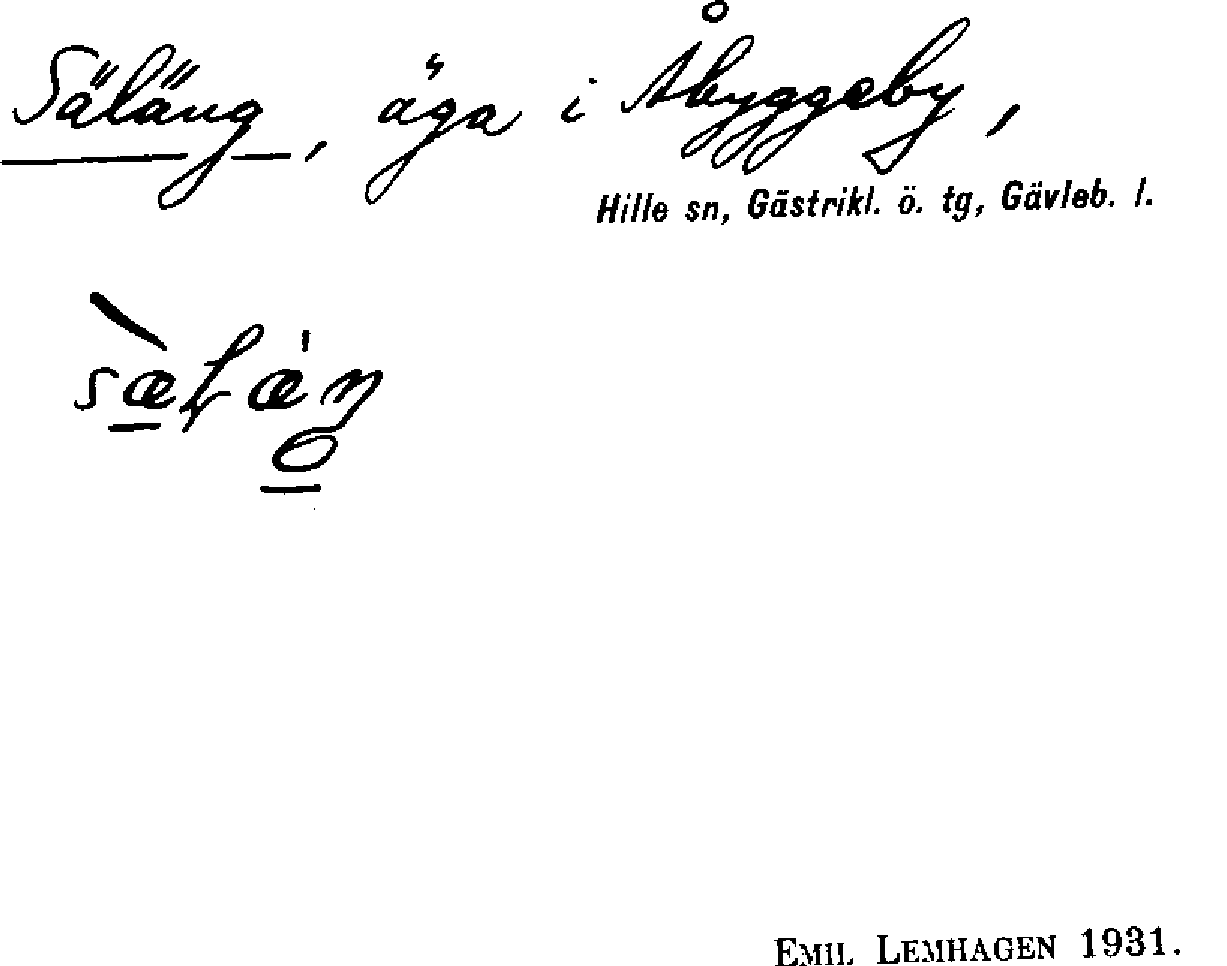 Säläng, äga i Åbyggeby,
Hille sn, Gästrikl. ö. tg, Gävleb. l.
sæ̀Læ̍ŋ
EMIL LEMHAGEN 1931.